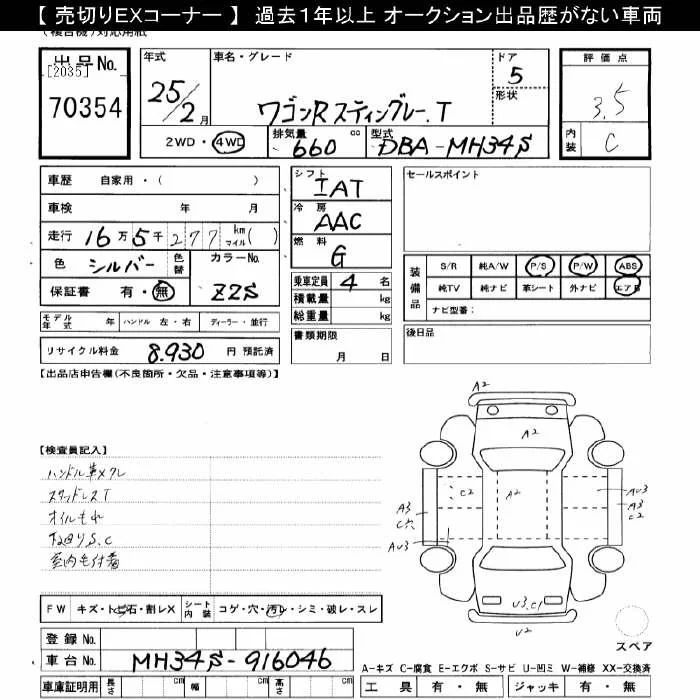 【 売切りEXコーナー 】 過去１年以上 オークション出品歴がない車両
(複合機)対応用紙
出品No.
[2035]
70354
年式
25/2月
車名・グレード
ワゴンRスティングレー.T
ドア
5
形状
2WD・4WD
排気量
660 cc
型式
DBA-MH34S
評価点
3.5
内装
C
車歴 自家用・( )
車検 年 月
走行 16万5千277 km マイル( )
色 シルバー 色替 カラーNo.
保証書 有・無 ZZS
モデル年式 年 ハンドル 左・右 ディーラー・並行
リサイクル料金 8,930 円 預託済
シフト
IAT
冷房
AAC
燃料
G
乗車定員 4 名
積載量 kg
総重量 kg
書類期限
月 日
セールスポイント
装備品
S/R 純A/W P/S P/W ABS
純TV 純ナビ 革シート 外ナビ エアB
ナビ型番:
後日品
【出品店申告欄(不良箇所・欠品・注意事項等)】
【検査員記入】
ハンドル革メクレ
スタッドレスT
オイルもれ
下回りS.C
室内毛付着
A2
A2
C2
A2
AU3
A3
C2
A3
C穴
AU3
U3.C1
U2
スペア
FW キズ・トビ石・割レX シート内装 コゲ・穴・汚レ・シミ・破レ・スレ
登録No.
車台No. MH34S-916046
車庫証明用 長さ cm 幅 cm 高さ cm
A-キズ C-腐食 E-エクボ S-サビ U-凹ミ W-補修 XX-交換済
工具 有・無 ジャッキ 有・無